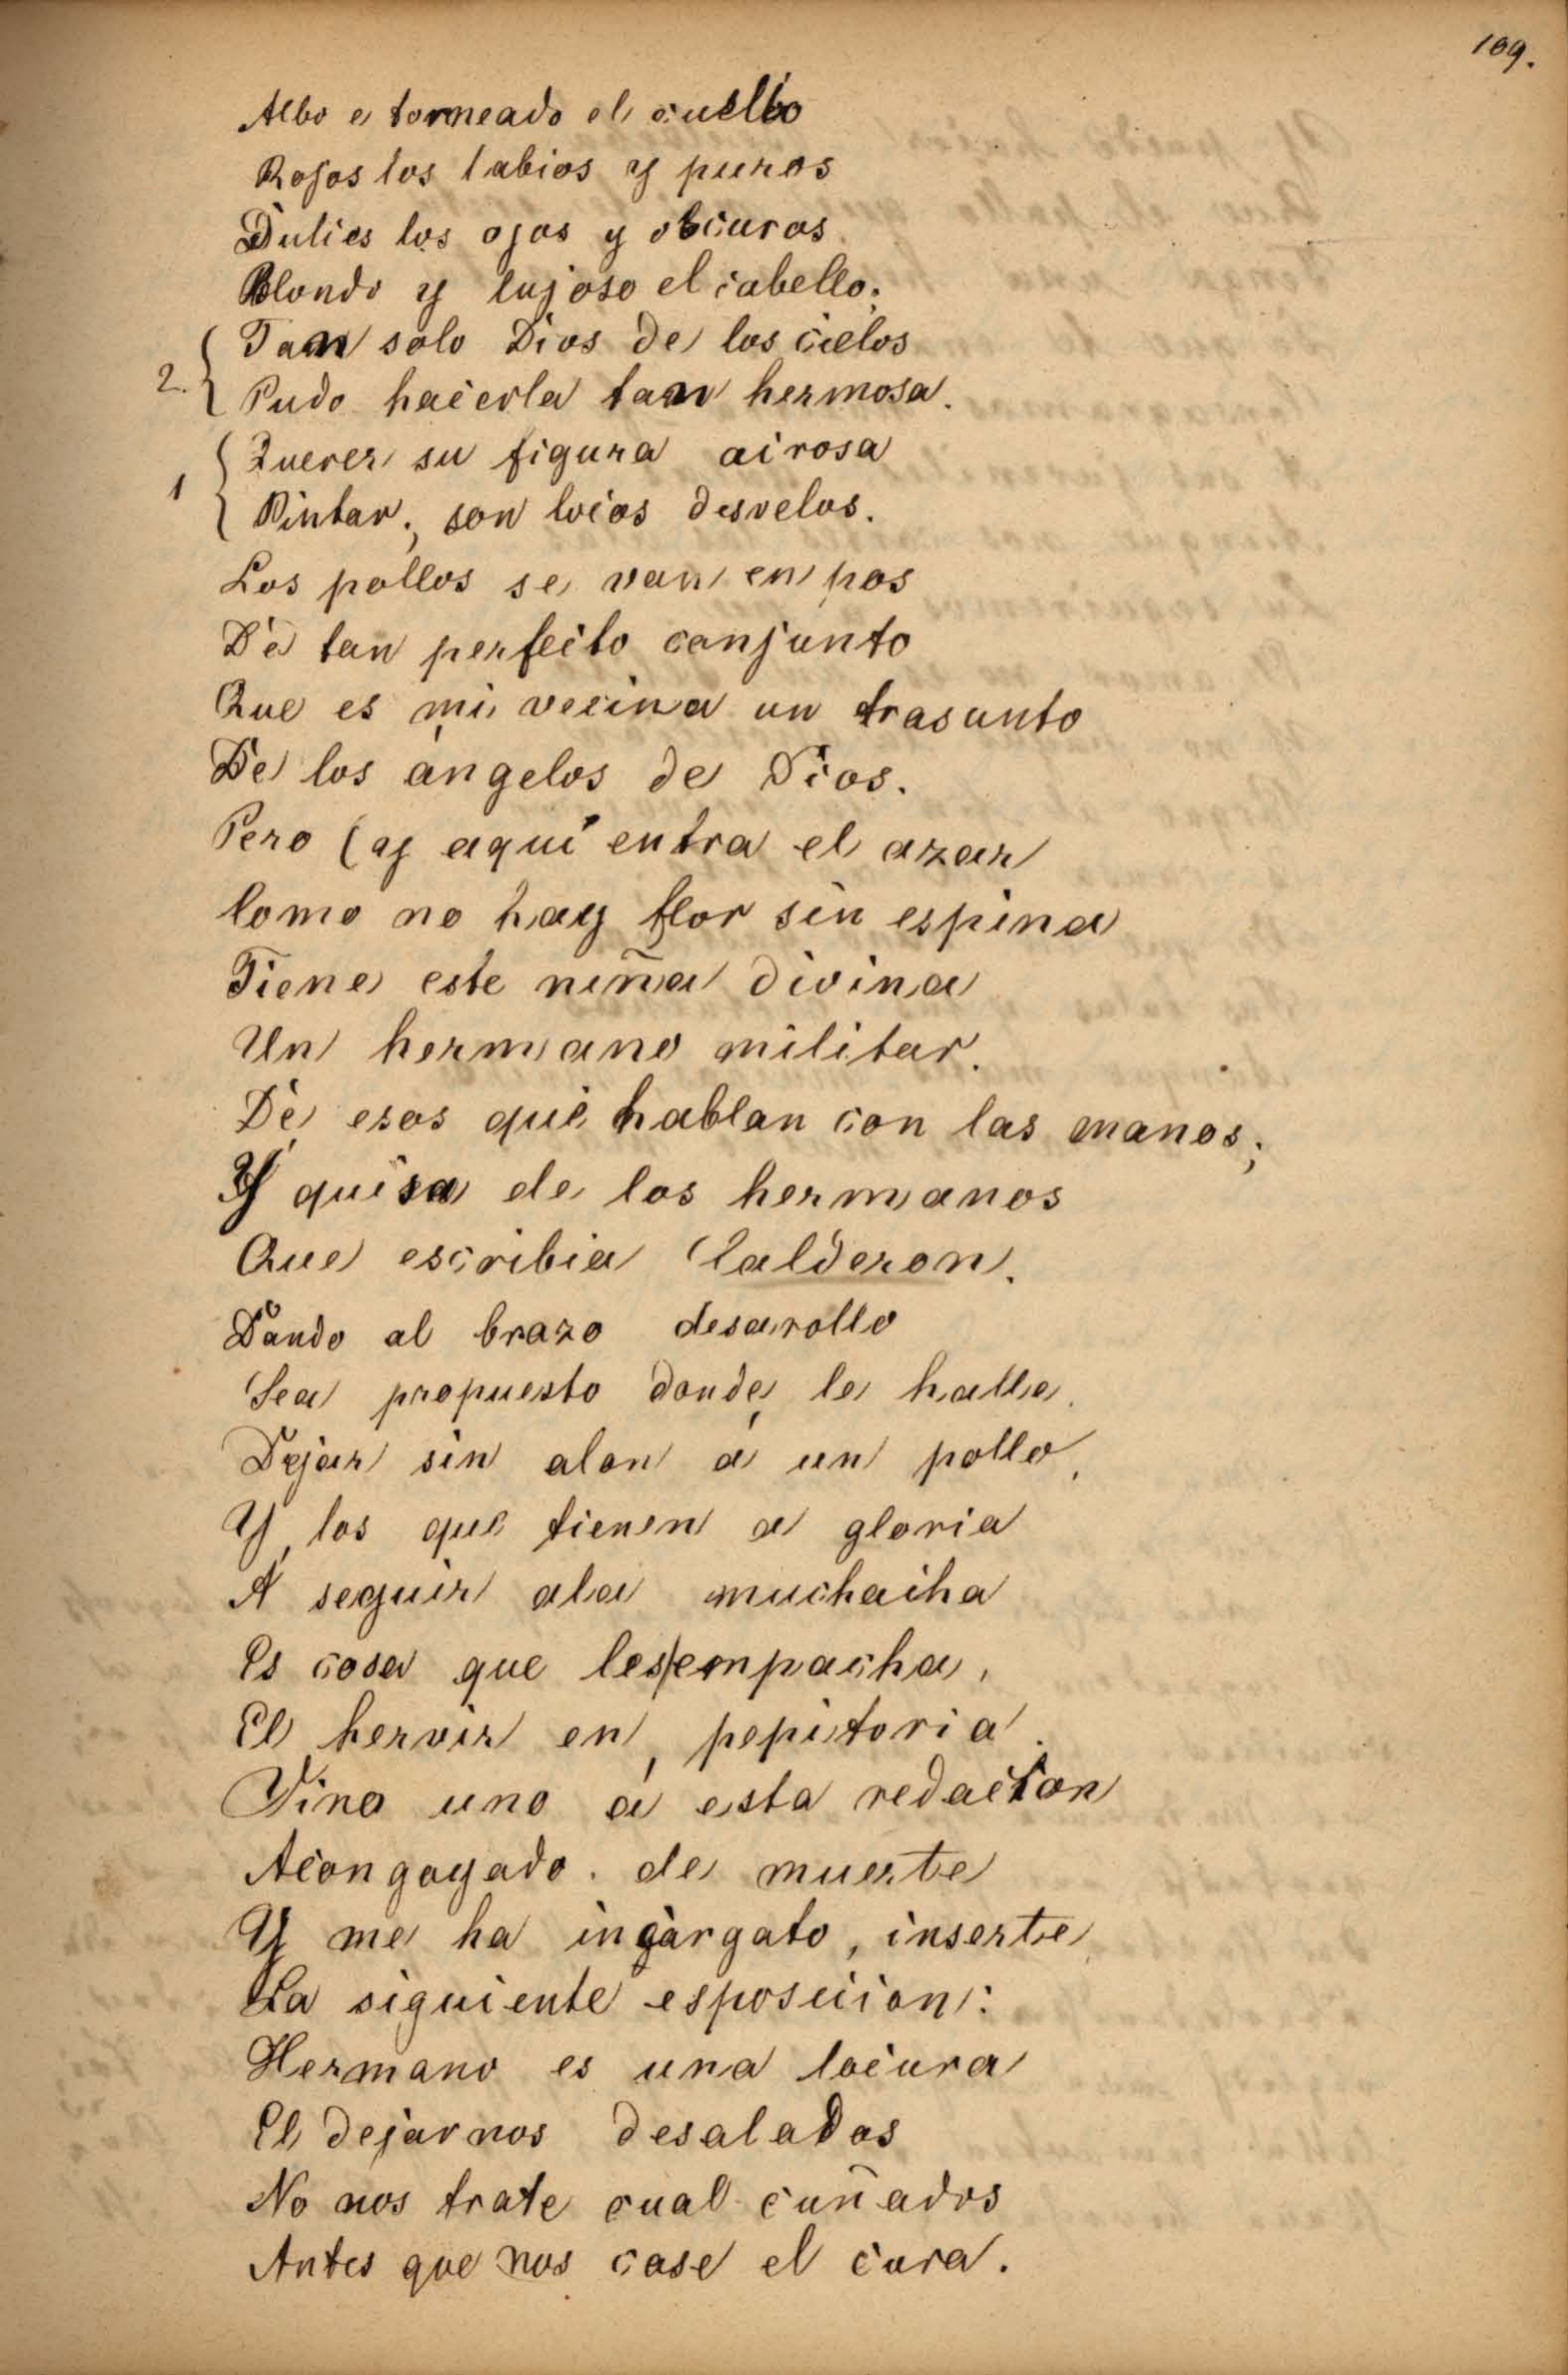 109.
Albo e torneado el cuello
Rojos los labios y puros
Dulces los ojos y obscuros
Blondo y lujoso el cabello;
Tan solo Dios de los cielos
2. Pudo hacerla tan hermosa.
Querer su figura airosa
1 Pintar; son locos desvelos.
Los pollos se van en pos
De tan perfecto conjunto
Que es mi vecina un trasunto
De los ángelos de Dios.
Pero (y aquí entra el azar
Como no hay flor sin espina
Tiene este niña divina
Un hermano militar.
De esos que hablan con las manos;
Y quisa de los hermanos
Que escribia Calderon.
Dando al brazo desarollo
Sea propuesto donde le halle.
Dejar sin alon á un pollo,
Y los que tienen a gloria
A seguir ala muchacha
Es cosa que les/empacha,
El hervir en pepitoria.
Vino uno á esta redaction
Acongoyado. de muerte
Y me ha ingargato, inserte
La siguiente esposicion:
Hermano es una locura
El dejarnos desalados
No nos trate cual cuñados
Antes que nos case el cura.